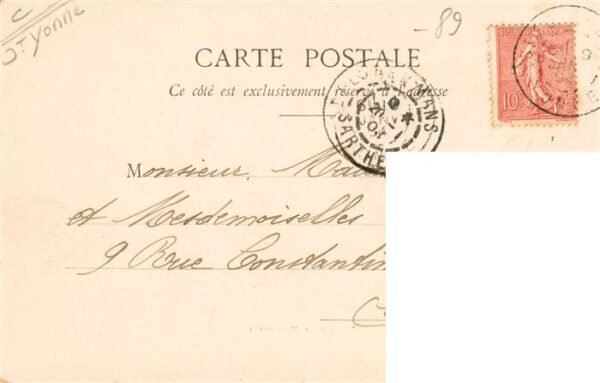 -89
Yonne
CARTE POSTALE
Ce côté est exclusivement réservé à l'adresse
MANS
SARTHE
10
Monsieur,
et Mesdemoiselles
9 Rue Constantin